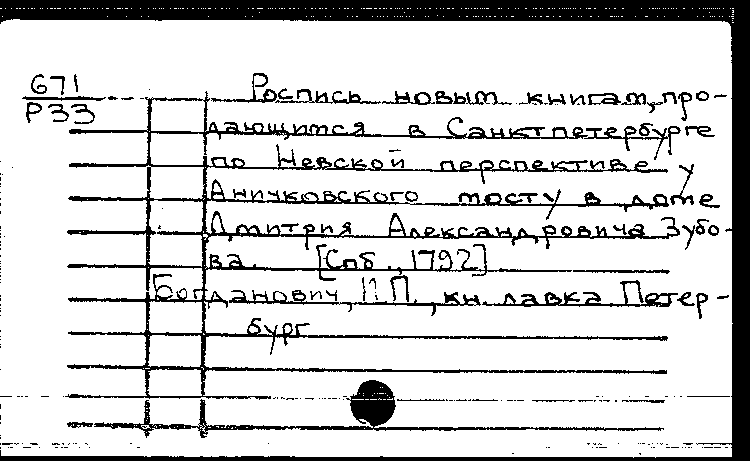 671
Р33
Роспись новым книгам, про-
дающимся в Санктпетербурге
по Невской перспективе у
Аничковского мосту в доме
Дмитрия Александровича Зубо-
ва. [Спб., 1792]
Богданович, И.П., кн. лавка Петер-
бург